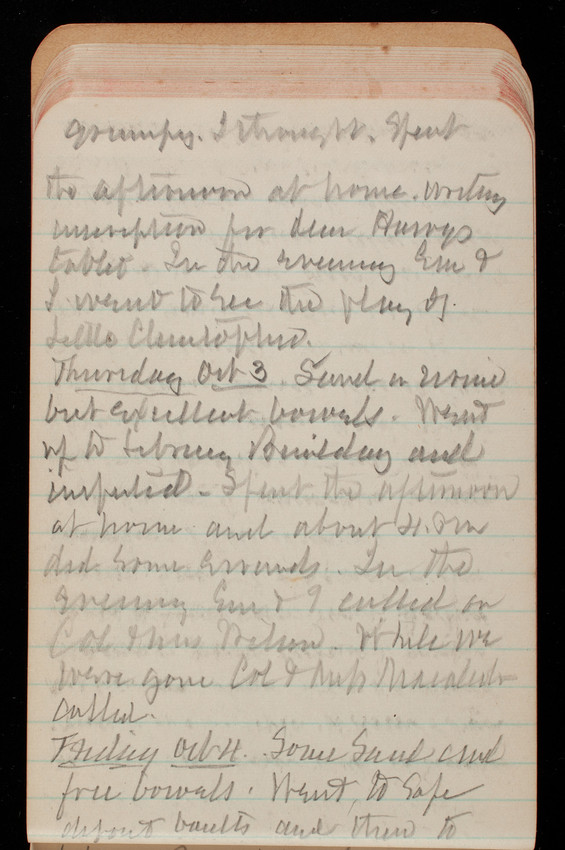 grumpy. I thought. Spent
the afternoon at home. writing
inscription for dear Harrys
tablet. In the evening Em &
I went to see the play of
Little Christopher.
Thursday Oct 3. Sand in urine
but excellent bowels. Went
up to Library Building and
inspected. Spent the afternoon
at home and about 4. Pm
did some errands. In the
evening Em & I called on
Col & Mrs Wilson. While we
were gone Col & Mrs
called.
Friday Oct 4. Some Sand and
free bowels. Went, to Safe
deposit vaults and then to